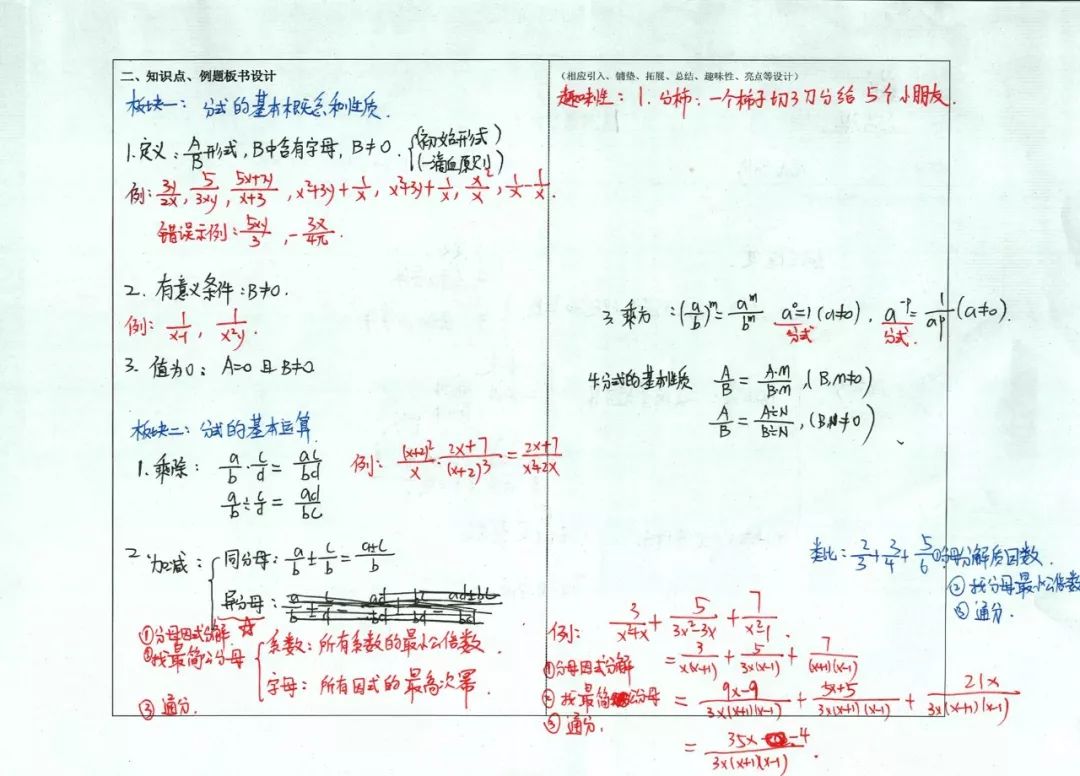 二、知识点、例题板书设计
板块一：分式的基本概念和性质.
1.定义：A/B形式，B中含有字母，B≠0. {(初始形式) (一滴血原则)
例：3y/2x, 5/3xy, 5x+2y/x+3, x²+3y+1/x, x²+3y+1/x, x²/x, 1/x-1/x.
错误示例：5xy/3, -3x/4π.
2. 有意义条件：B≠0.
例：1/x-1, 1/x²y.
3. 值为0：A=0 且 B≠0
板块二：分式的基本运算
1.乘除：a/b·c/d=ac/bd
例：(x+2)²/x·2x+7/(x+2)³=2x+7/x²+2x
a/b÷c/d=ad/bc
2 加减：{同分母：a/b±c/b=a±c/b
异分母：
①分母因式分解 ☆
②找最简公分母 {系数：所有系数的最小公倍数
字母：所有因式的最高次幂.
③通分.
(相应引入、铺垫、拓展、总结、趣味性、亮点等设计)
趣味性：1.分柿：一个柿子切3刀分给5个小朋友.
3.乘方：(a/b)^m=a^m/b^m a⁰=1(a≠0). a^-p=1/a^p(a≠0).
分式 分式.
4分式的基本性质 A/B=A·m/B·m,(B,m≠0)
A/B=A÷N/B÷N,(B,N≠0)
类比：2/3+3/4+5/6 ①分母分解质因数.
②找分母最小公倍数
③通分.
例：3/x²+x+5/3x²-3x+7/x²-1.
=3/x(x+1)+5/3x(x-1)+7/(x+1)(x-1)
①分母因式分解
②找最简公分母 =9x-9/3x(x+1)(x-1)+5x+5/3x(x+1)(x-1)+21x/3x(x+1)(x-1)
③通分.
=35x-4/3x(x+1)(x-1).